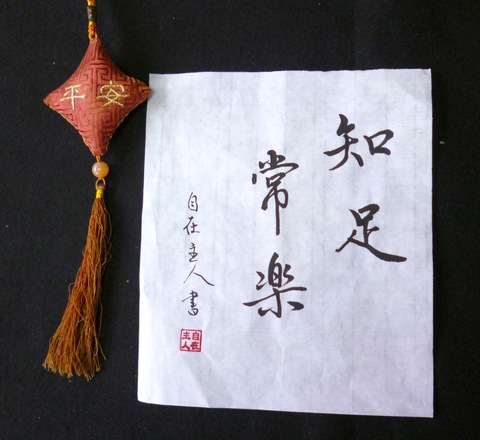 知足
常楽
自在主人書
自在
主人
平安